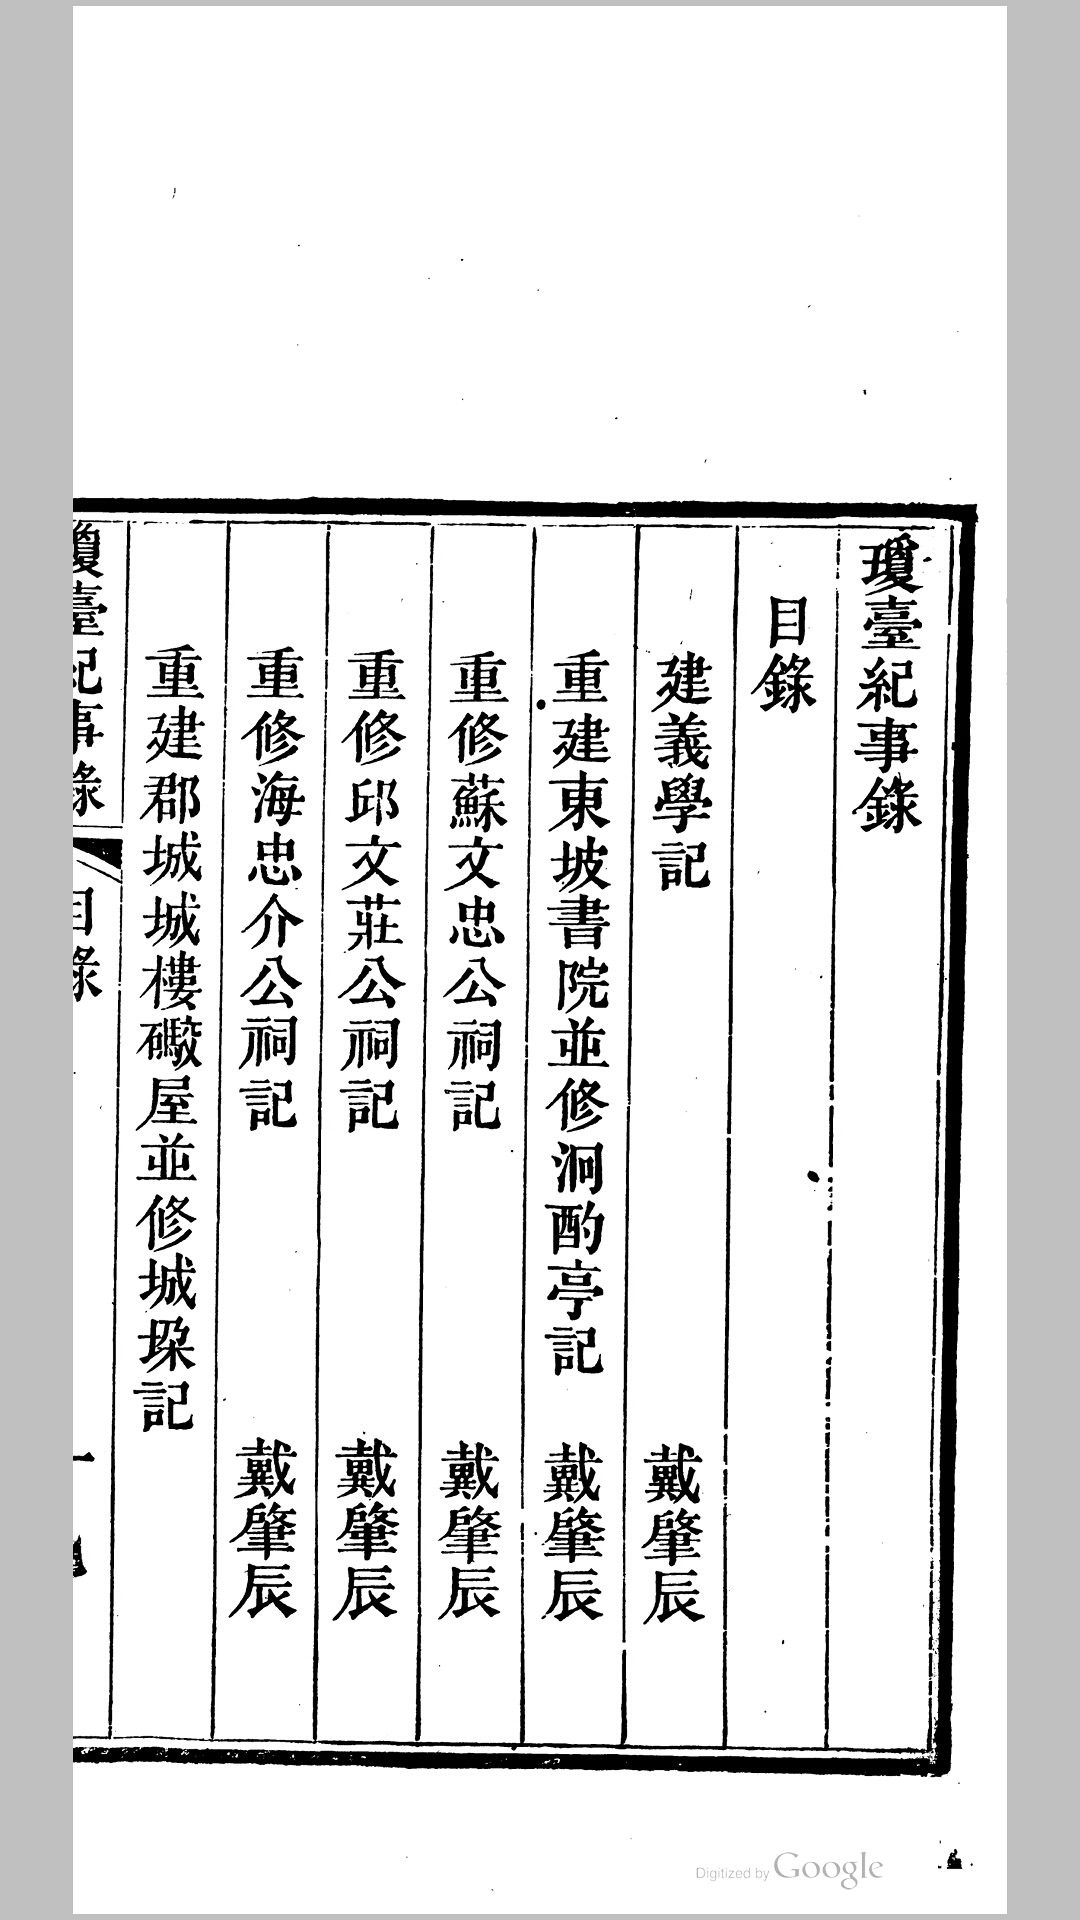 瓊臺紀事錄
目錄
建義學記 戴肇辰
重建東坡書院並修泂酌亭記 戴肇辰
重修蘇文忠公祠記 戴肇辰
重修邱文莊公祠記 戴肇辰
重修海忠介公祠記 戴肇辰
重建郡城城樓礮屋並修城垛記
瓊臺紀事錄 目錄 一
Digitized by Google